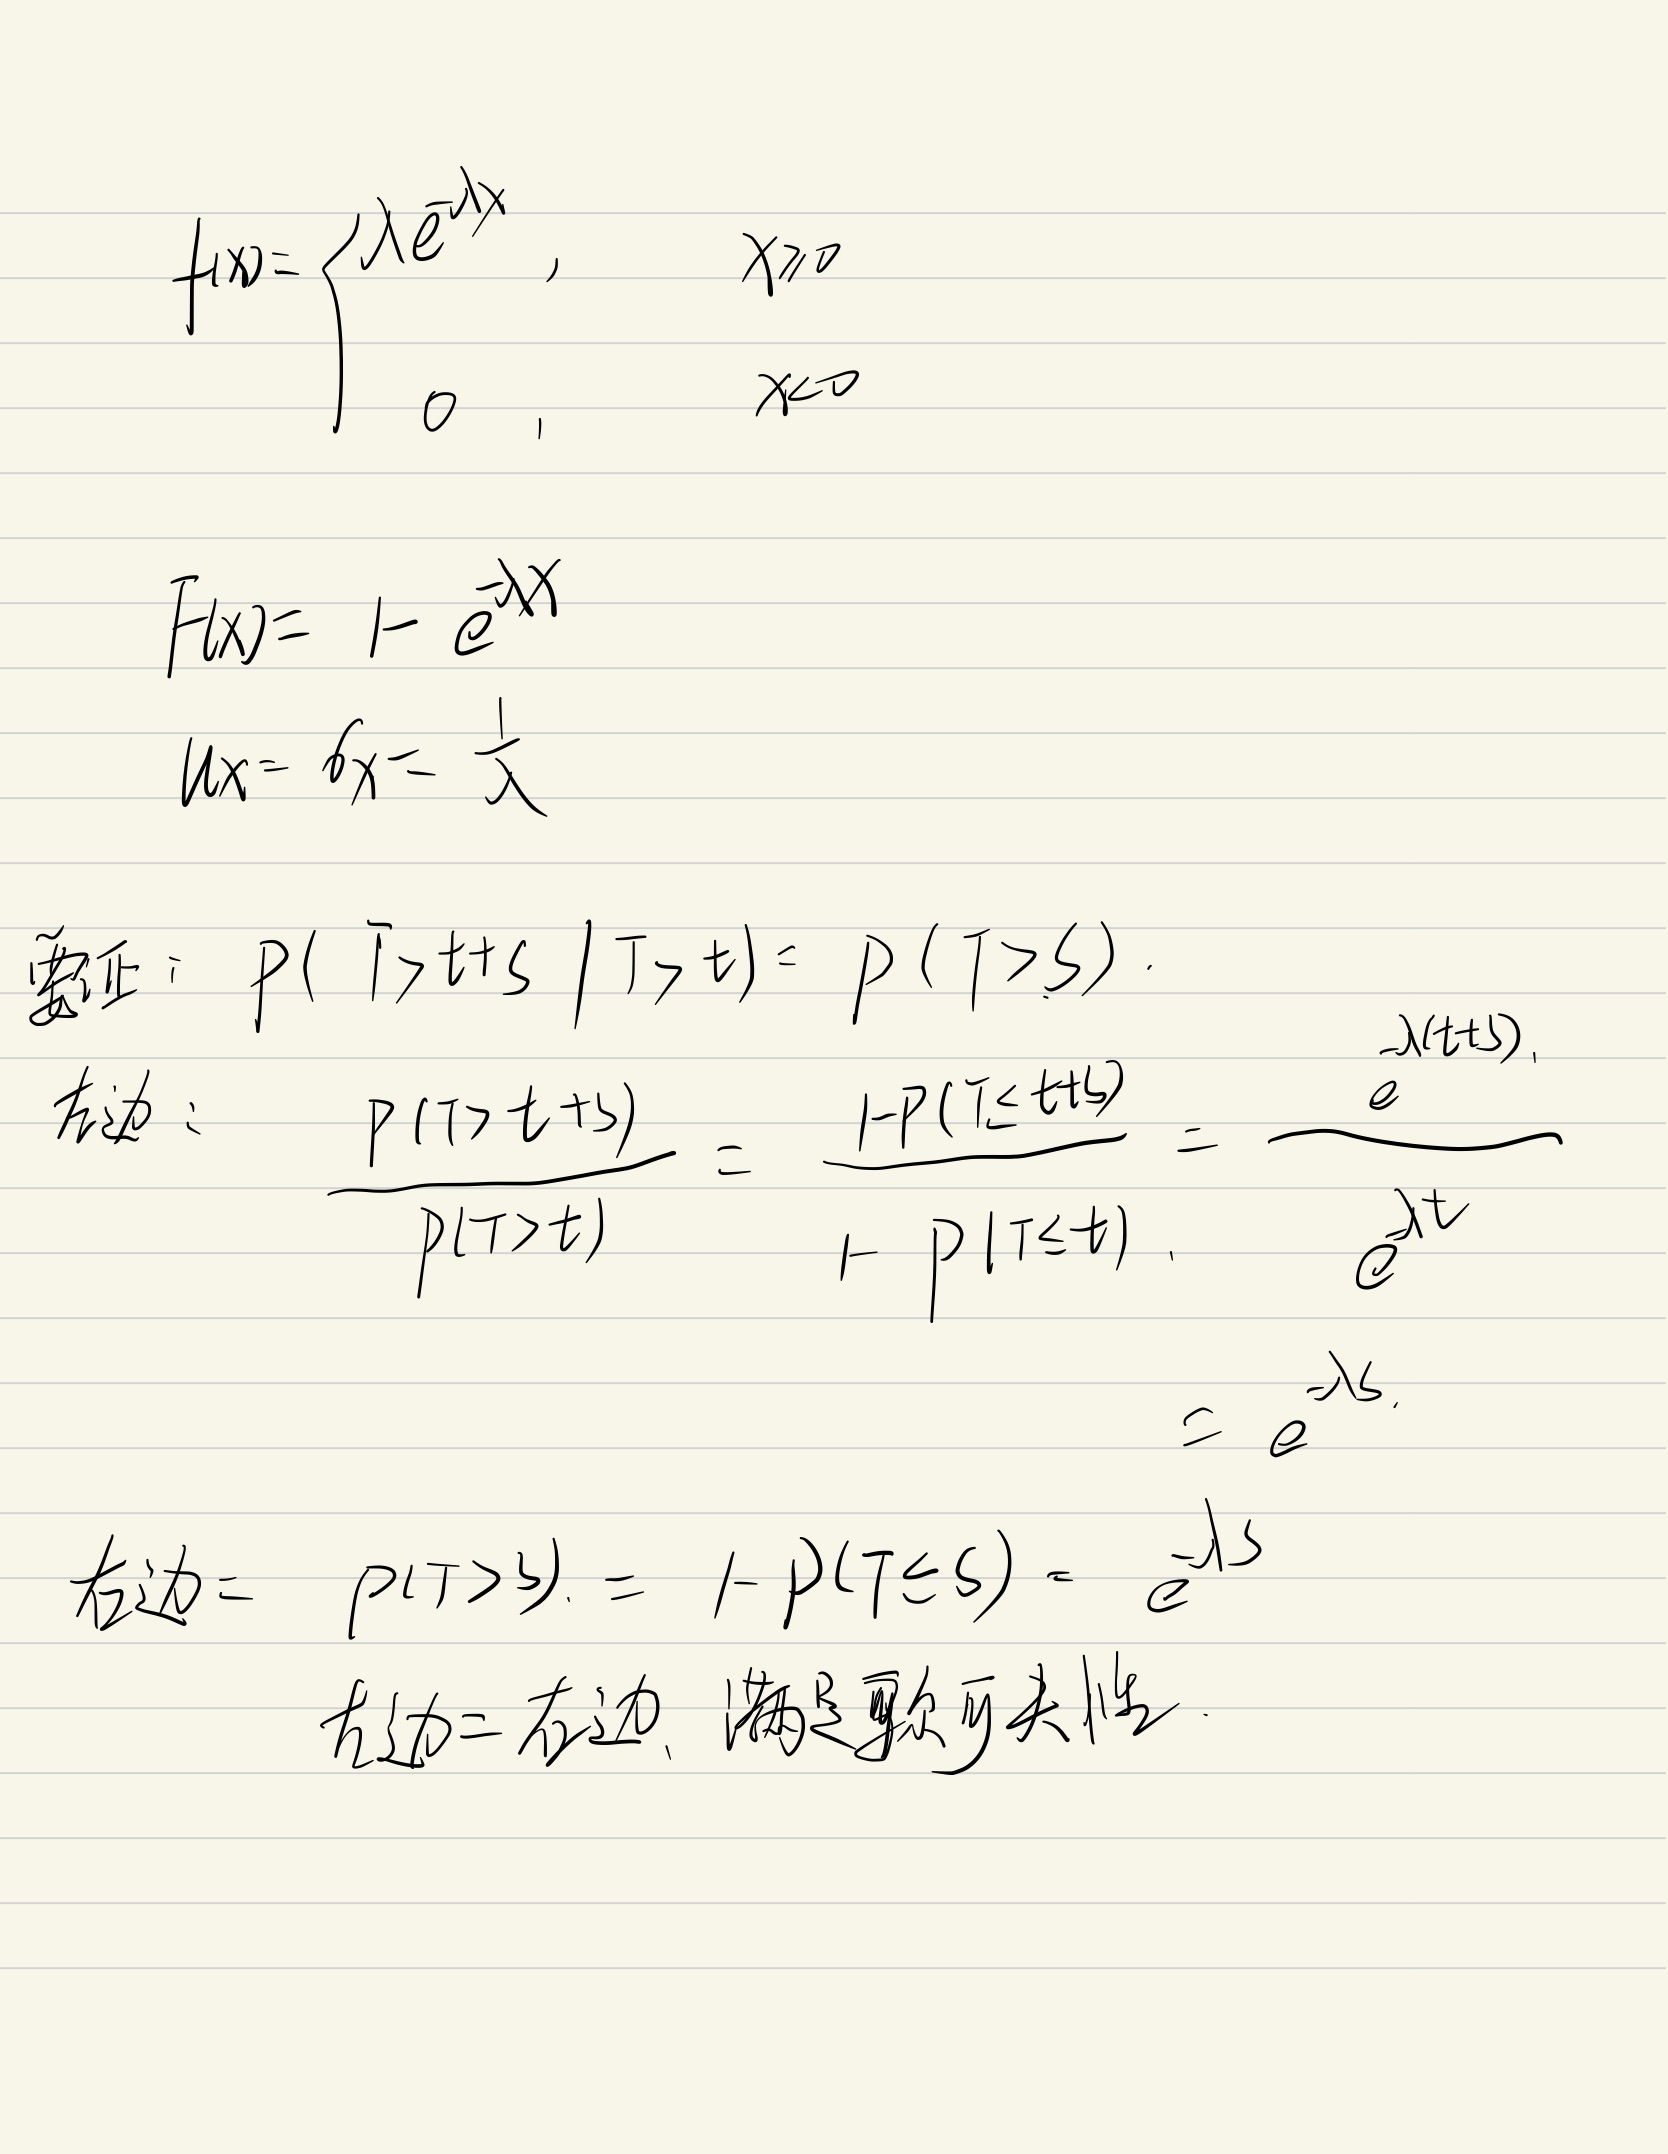 f(x)= { λe^{-λx} , x≥0
0 , x<0
F(x)= 1- e^{-λx}
μx= σx= 1/λ
要证: P( T>t+s | T>t)= P(T>s).
左边: P(T>t+s)/P(T>t) = (1-P(T≤t+s))/(1-P(T≤t)). = e^{-λ(t+s)}/e^{-λt}
= e^{-λs}.
右边= P(T>s). = 1-P(T≤s)= e^{-λs}
左边=右边、满足马尔可夫性.